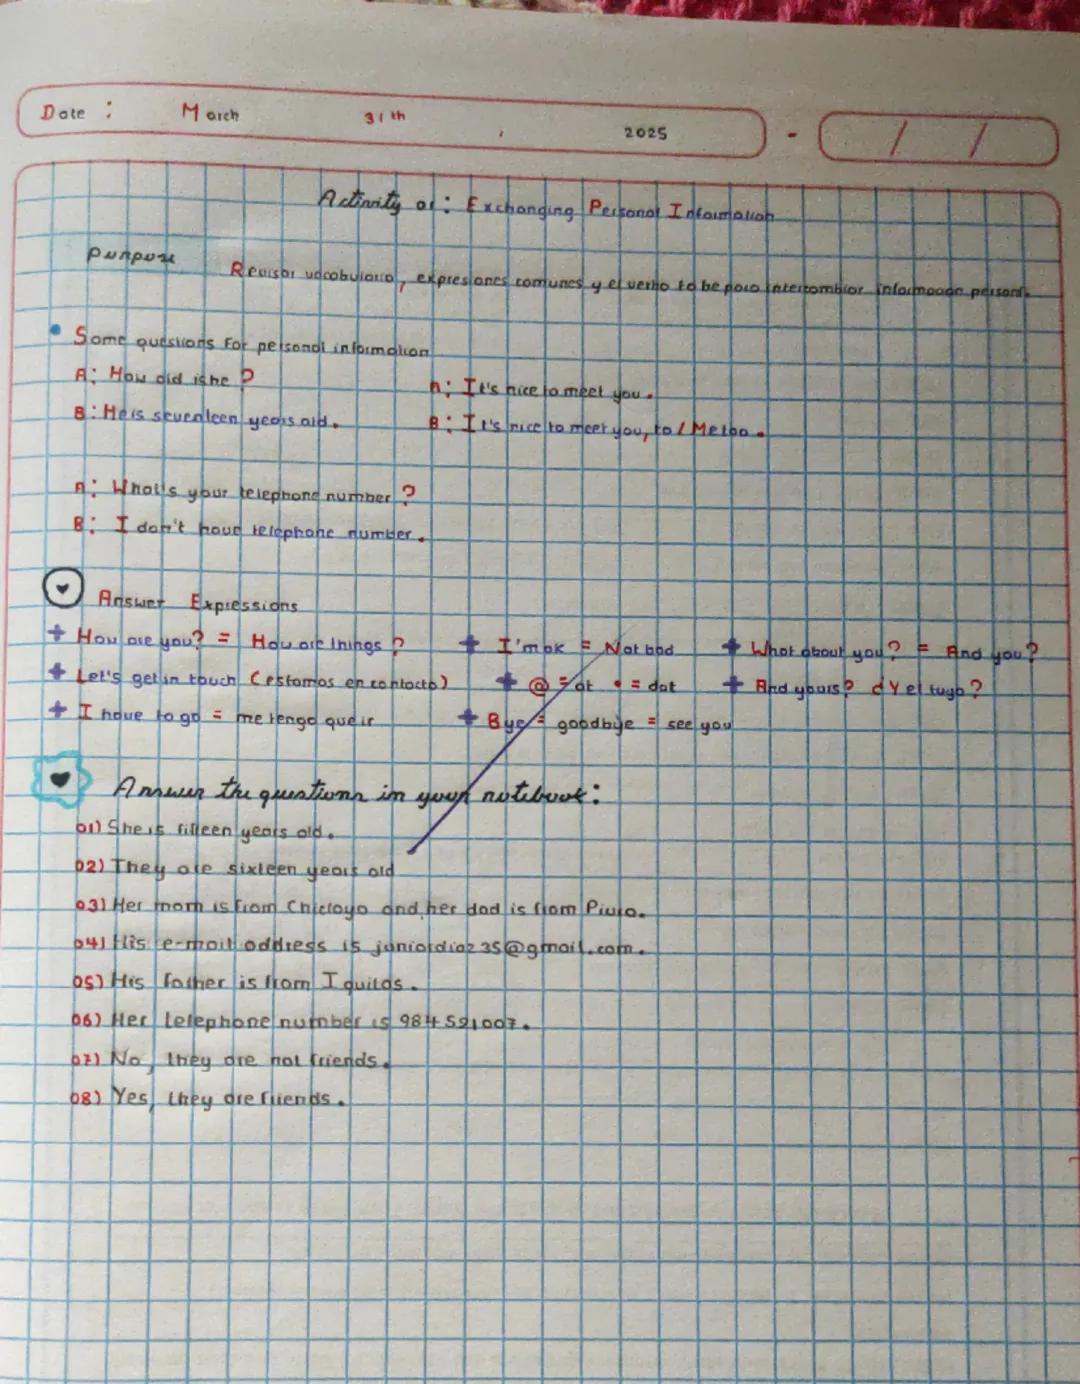 Date : March 31th , 2025 - / /
Activity 01: Exchanging Personal Information
Purpose Revisar vocabulario, expresiones comunes y el verbo to be para intercambiar información personal.
• Some questions For personal information
A: How old is he ?
A: It's nice to meet you.
B: He is seventeen years old.
B: It's nice to meet you, to / Me too.
A: What's your telephone number ?
B: I don't have telephone number.
Answer Expressions
+ How are you? = How are things ? + I'm ok = Not bad + What about you? = And you?
+ Let's get in touch (estamos en contacto) + @ = at • = dot + And yours? ¿Y el tuyo?
+ I have to go = me tengo que ir + Bye = goodbye = see you
Answer the questions in your notebook:
01) She is fifteen years old.
02) They are sixteen years old
03) Her mom is from Chiclayo and her dad is from Piura.
04) His e-mail address is juniordiaz35@gmail.com.
05) His father is from Iquitos.
06) Her telephone number is 984 591007.
07) No, they are not friends.
08) Yes, they are friends.